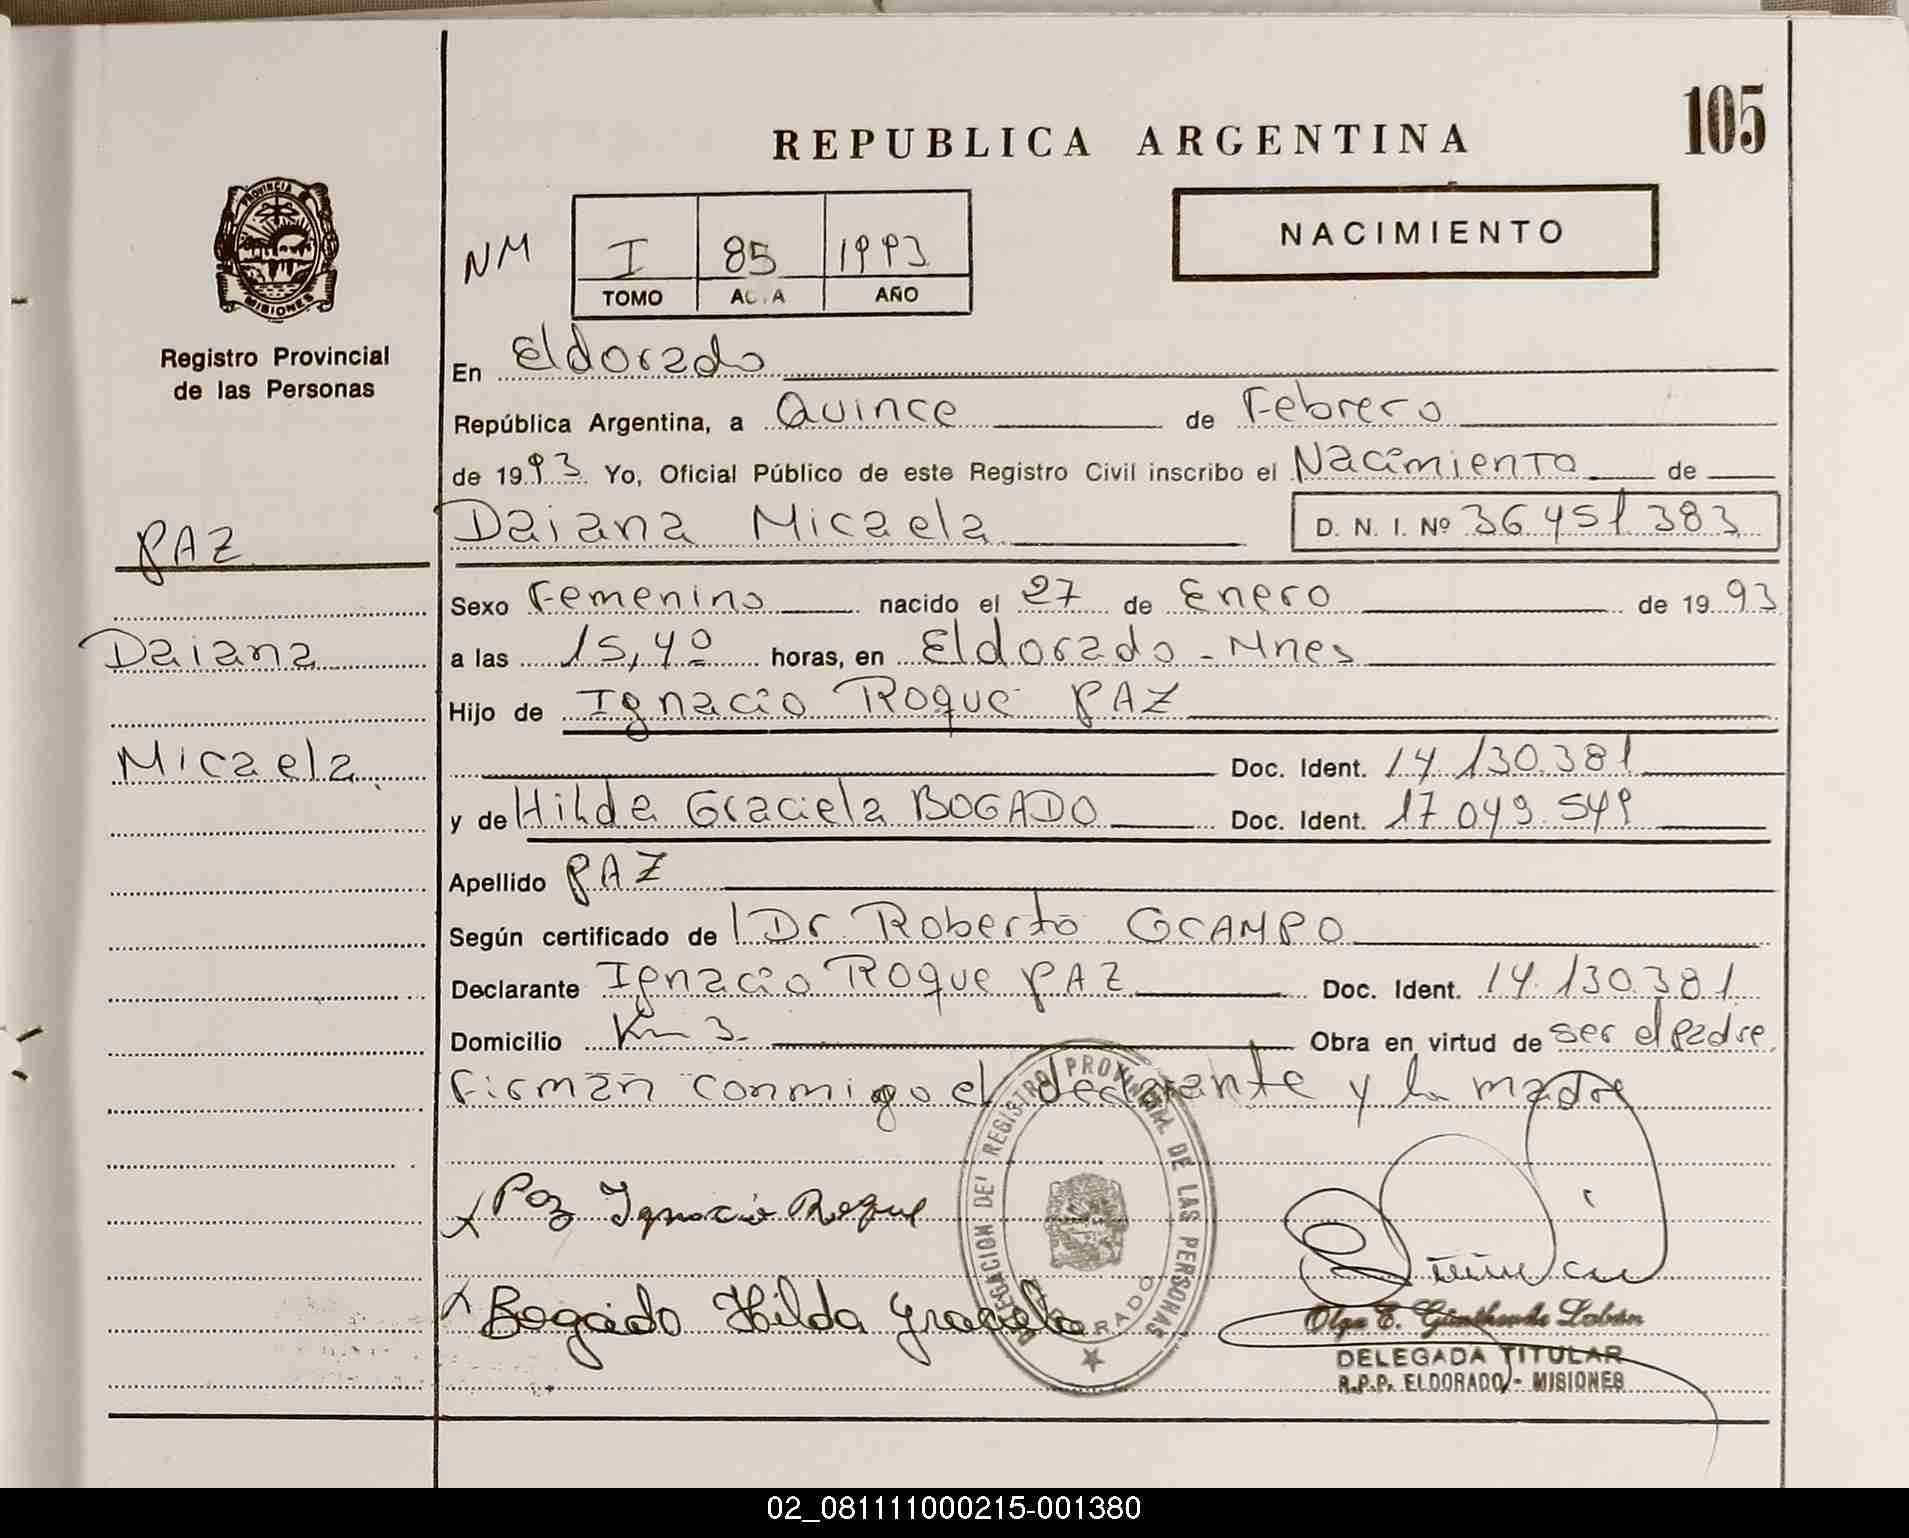 105
REPUBLICA ARGENTINA
PROVINCIA
MISIONES
Registro Provincial
de las Personas
NM
I 85 1993
TOMO ACTA AÑO
NACIMIENTO
En Eldorado
República Argentina, a Quince de Febrero
de 1993 Yo, Oficial Público de este Registro Civil inscribo el Nacimiento de
Daiana Micaela D. N. I. Nº 36.451.383
PAZ
Daiana
Micaela
Sexo Femenino nacido el 27 de Enero de 1993
a las 15,40 horas, en Eldorado - Mnes
Hijo de Ignacio Roque PAZ
Doc. Ident. 14.130.381
y de Hilda Graciela BOGADO Doc. Ident. 17.049.549
Apellido PAZ
Según certificado de Dr Roberto OCAMPO
Declarante Ignacio Roque PAZ Doc. Ident. 14.130.381
Domicilio Km 3 Obra en virtud de ser el padre
Firman conmigo el declarante y la madre
Paz Ignacio Roque
Bogado Hilda Graciela
DELEGACION DEL REGISTRO PROVINCIAL DE LAS PERSONAS
ELDORADO
Olga E.
DELEGADA TITULAR
R.P.P. ELDORADO - MISIONES
02_081111000215-001380